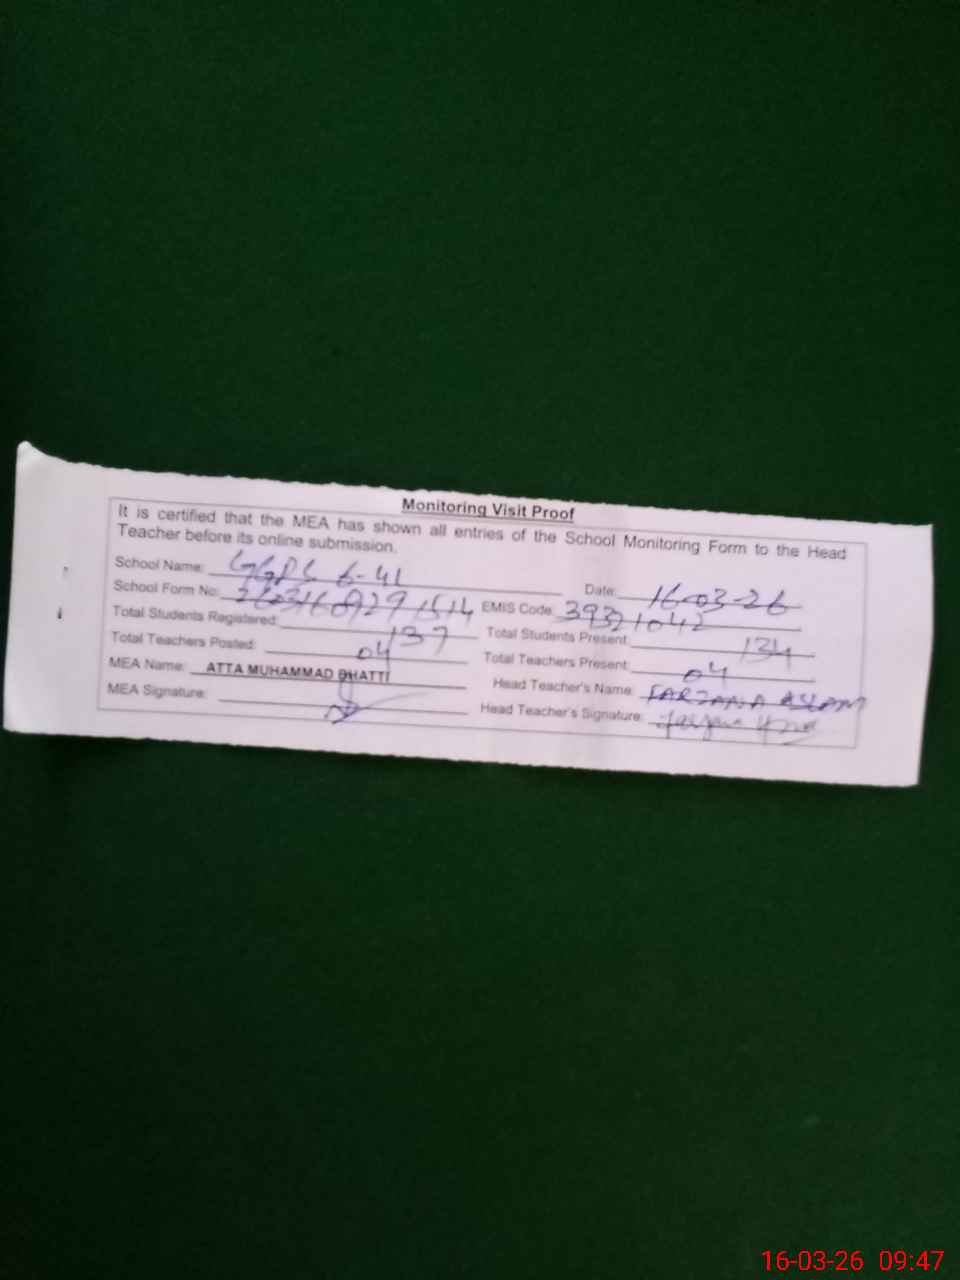 Monitoring Visit Proof
It is certified that the MEA has shown all entries of the School Monitoring Form to the Head
Teacher before its online submission.
School Name: GGPS 6-4L Date: 16-03-26
School Form No: EMIS Code: 39321042
Total Students Registered: 137 Total Students Present: 134
Total Teachers Posted: 04 Total Teachers Present: 04
MEA Name: ATTA MUHAMMAD BHATTI Head Teacher's Name: FARZANA ASLAM
MEA Signature: Head Teacher's Signature:
16-03-26 09:47